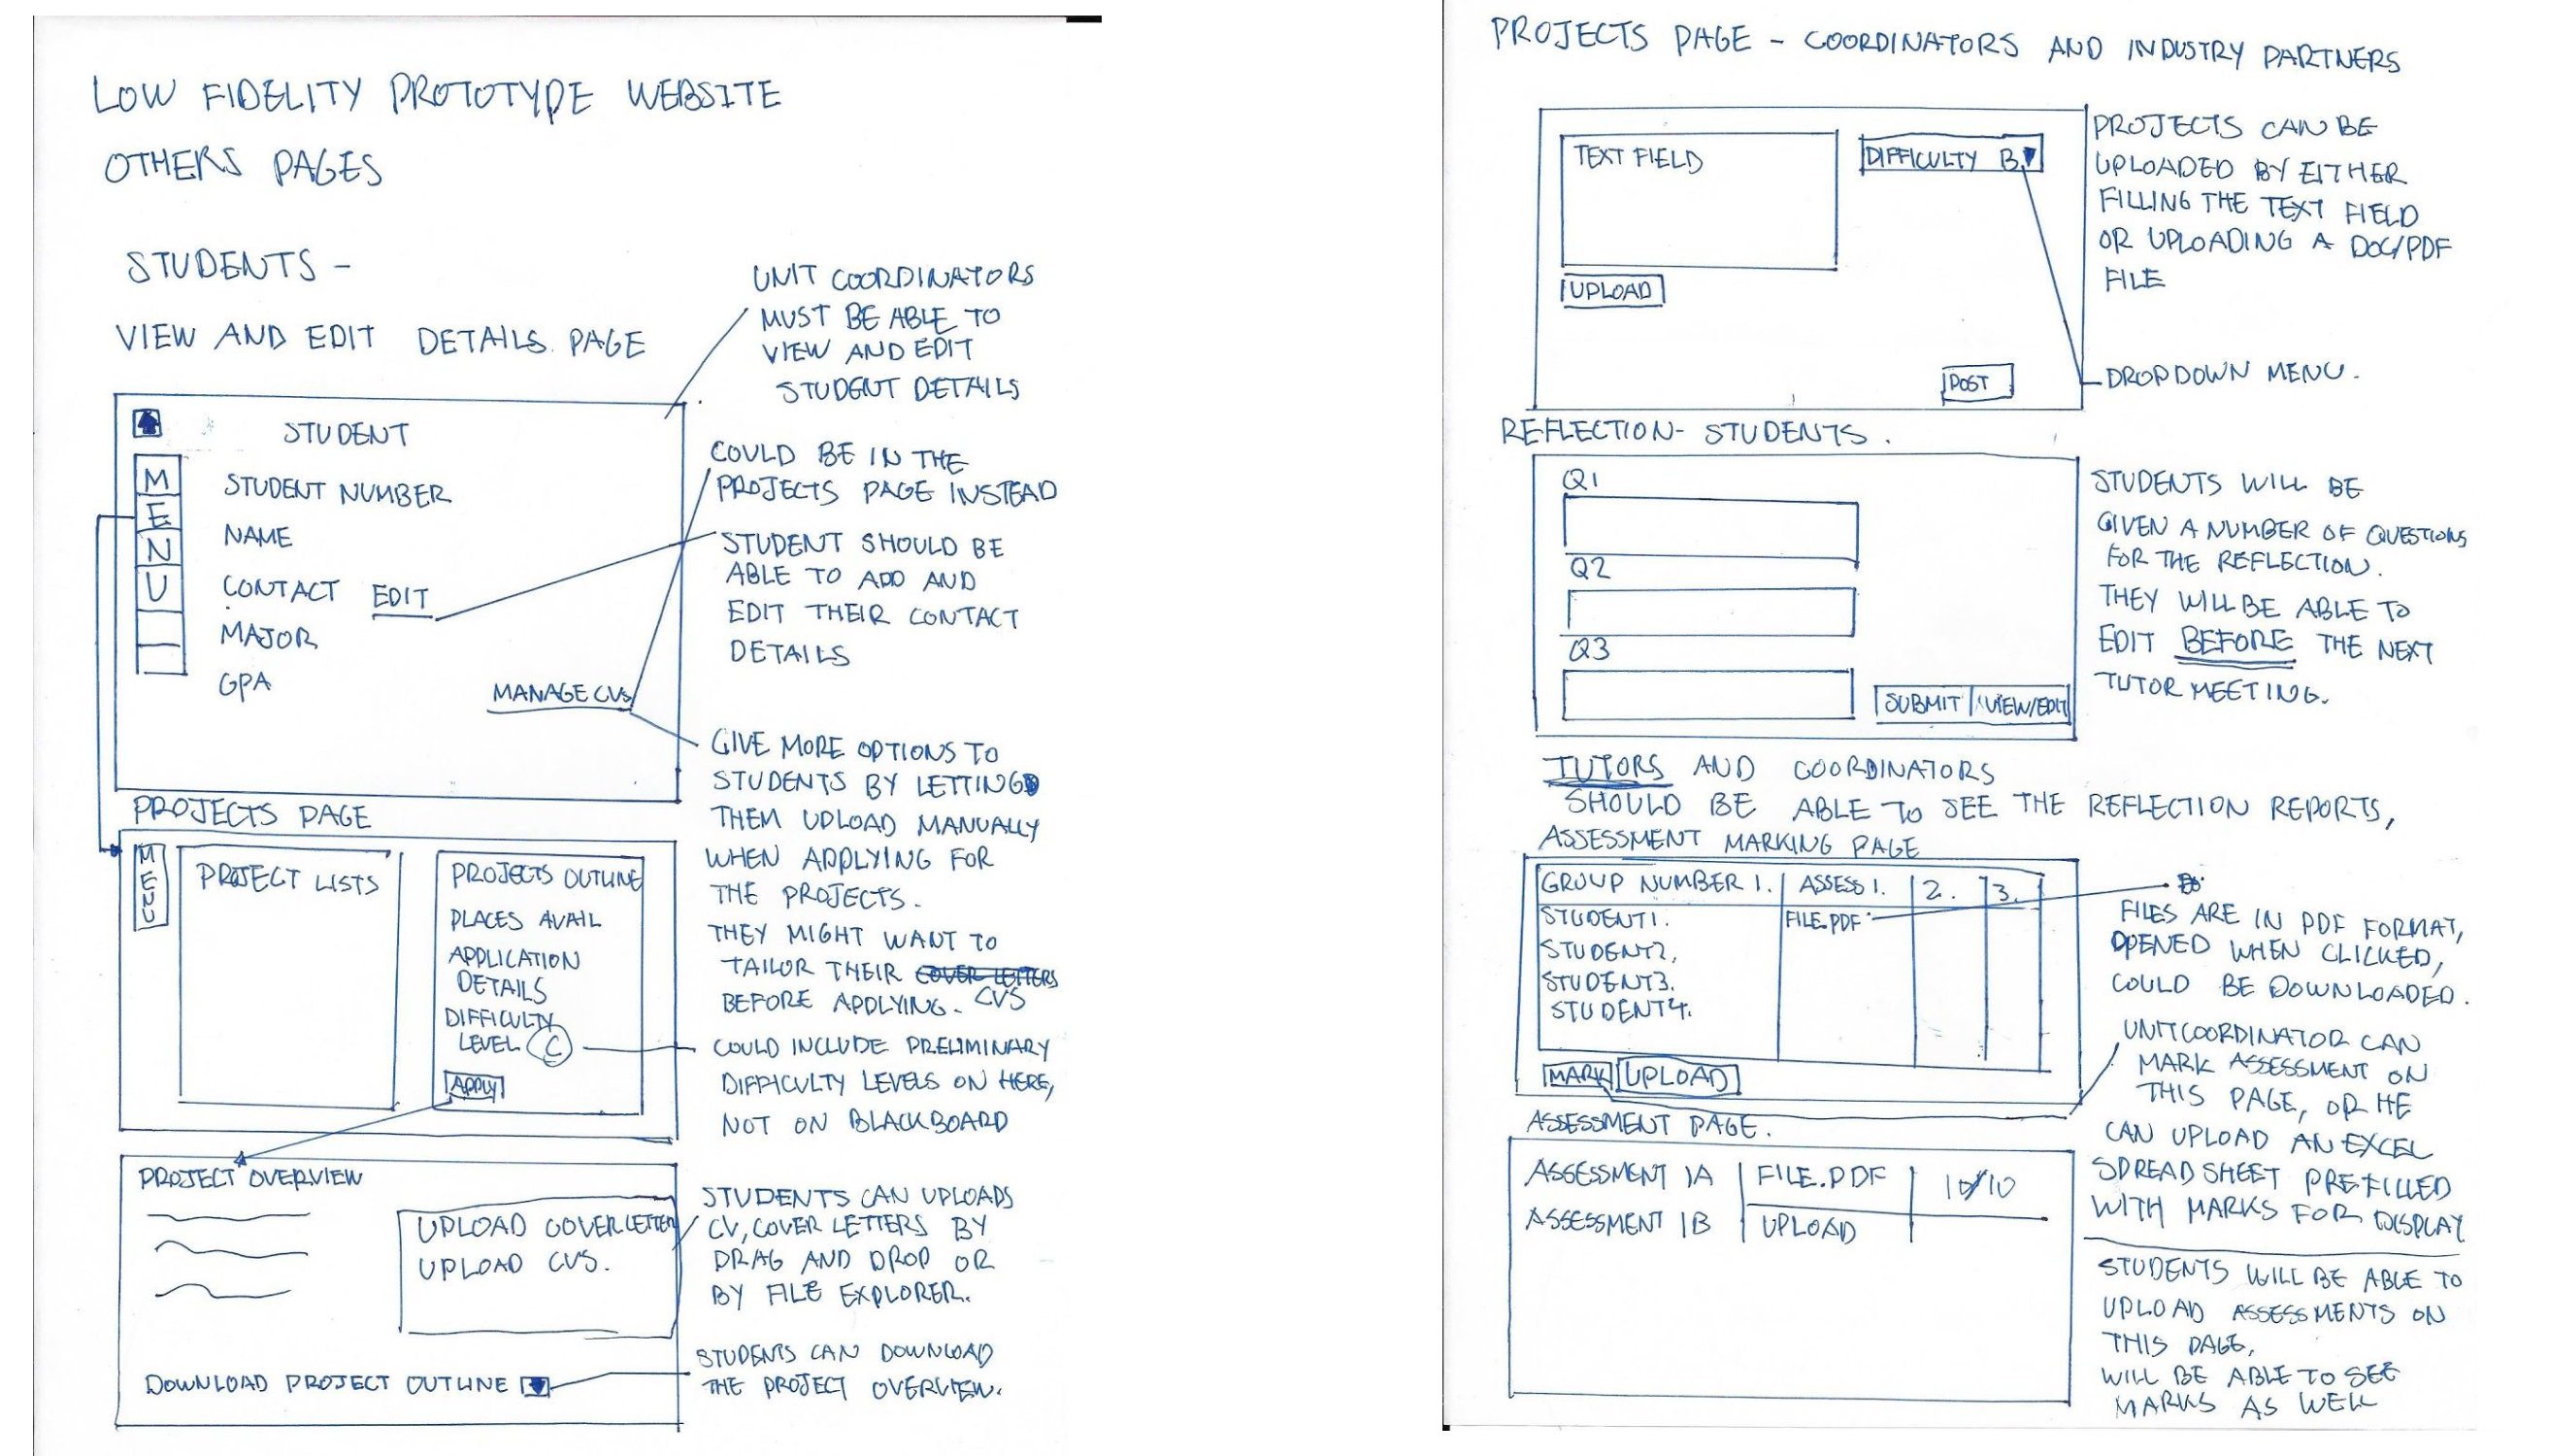 LOW FIDELITY PROTOTYPE WEBSITE
OTHERS PAGES
STUDENTS -
VIEW AND EDIT DETAILS PAGE
UNIT COORDINATORS
MUST BE ABLE TO
VIEW AND EDIT
STUDENT DETAILS
STUDENT
MENU
STUDENT NUMBER
NAME
CONTACT EDIT
MAJOR
GPA
MANAGE CVs
COULD BE IN THE
PROJECTS PAGE INSTEAD
STUDENT SHOULD BE
ABLE TO ADD AND
EDIT THEIR CONTACT
DETAILS
GIVE MORE OPTIONS TO
STUDENTS BY LETTING
THEM UPLOAD MANUALLY
WHEN APPLYING FOR
THE PROJECTS.
THEY MIGHT WANT TO
TAILOR THEIR COVER LETTERS
BEFORE APPLYING. CVS
PROJECTS PAGE
MENU
PROJECT LISTS
PROJECTS OUTLINE
PLACES AVAIL
APPLICATION
DETAILS
DIFFICULTY
LEVEL C
APPLY
COULD INCLUDE PRELIMINARY
DIFFICULTY LEVELS ON HERE,
NOT ON BLACKBOARD
PROJECT OVERVIEW
UPLOAD COVER LETTER
UPLOAD CVS.
STUDENTS CAN UPLOADS
CV, COVER LETTERS BY
DRAG AND DROP OR
BY FILE EXPLORER.
DOWNLOAD PROJECT OUTLINE
STUDENTS CAN DOWNLOAD
THE PROJECT OVERVIEW.
PROJECTS PAGE - COORDINATORS AND INDUSTRY PARTNERS
TEXT FIELD
DIFFICULTY B
UPLOAD
POST
PROJECTS CAN BE
UPLOADED BY EITHER
FILLING THE TEXT FIELD
OR UPLOADING A DOC/PDF
FILE
DROPDOWN MENU.
REFLECTION - STUDENTS.
Q1
Q2
Q3
SUBMIT VIEW/EDIT
STUDENTS WILL BE
GIVEN A NUMBER OF QUESTIONS
FOR THE REFLECTION.
THEY WILL BE ABLE TO
EDIT BEFORE THE NEXT
TUTOR MEETING.
TUTORS AND COORDINATORS
SHOULD BE ABLE TO SEE THE REFLECTION REPORTS,
ASSESSMENT MARKING PAGE
GROUP NUMBER 1. ASSESS 1. 2. 3.
STUDENT1. FILE.PDF
STUDENT2,
STUDENT3.
STUDENT4.
MARK UPLOAD
FILES ARE IN PDF FORMAT,
OPENED WHEN CLICKED,
COULD BE DOWNLOADED.
UNIT COORDINATOR CAN
MARK ASSESSMENT ON
THIS PAGE, OR HE
CAN UPLOAD AN EXCEL
SPREADSHEET PREFILLED
WITH MARKS FOR DISPLAY
ASSESSMENT PAGE.
ASSESSMENT 1A FILE.PDF 10/10
ASSESSMENT 1B UPLOAD
STUDENTS WILL BE ABLE TO
UPLOAD ASSESSMENTS ON
THIS PAGE,
WILL BE ABLE TO SEE
MARKS AS WELL